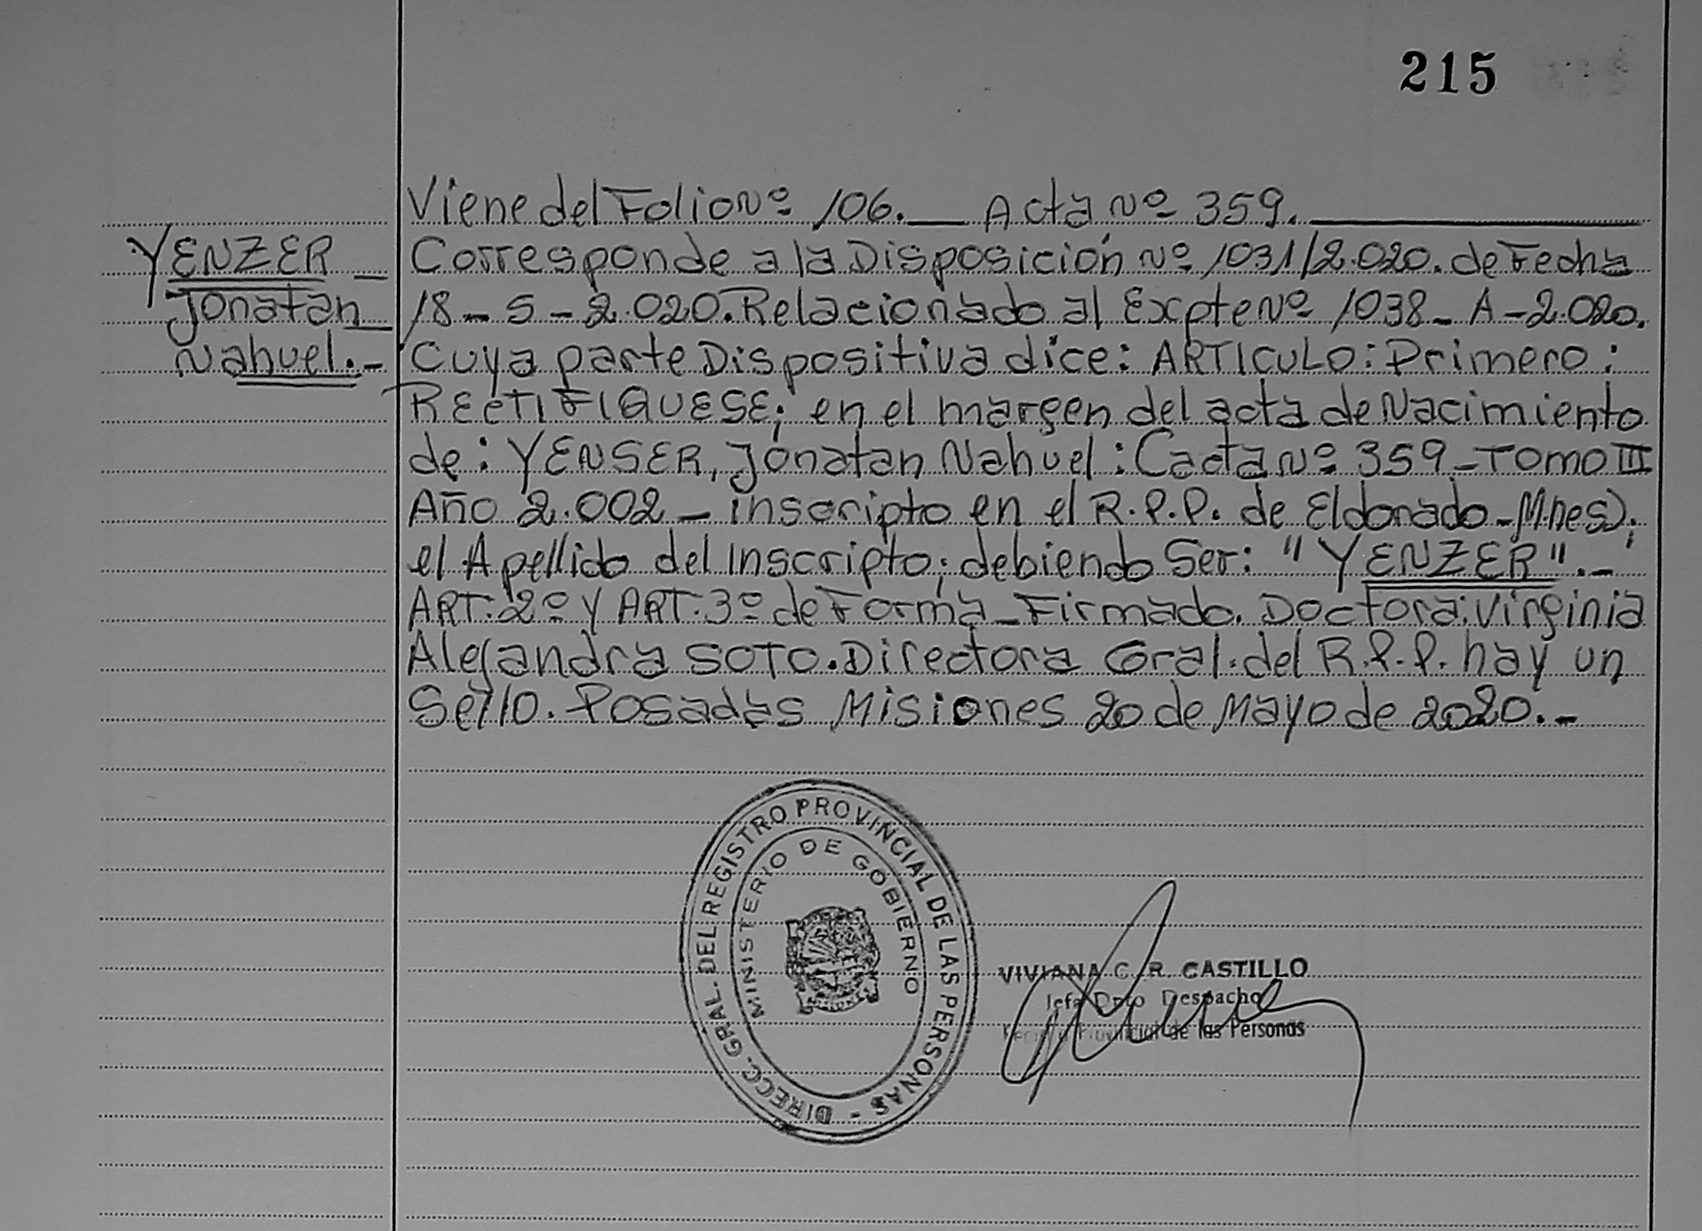 215
Viene del Folio Nº 106. _ Acta Nº 359.
YENZER _
Jonatan _
Nahuel.-
Corresponde a la Disposición Nº 1031/2.020. de Fecha
18 - 5 - 2.020. Relacionado al Expte Nº 1038 - A - 2.020.
Cuya parte Dispositiva dice: ARTICULO: Primero:
RECTIFIQUESE; en el margen del acta de Nacimiento
de: YENSER, Jonatan Nahuel: (acta Nº 359 - Tomo III
Año 2.002 - inscripto en el R.P.P. de Eldorado - Mnes);
el Apellido del Inscripto; debiendo Ser: "YENZER".-
ART: 2º y ART: 3º de Forma - Firmado. Doctora: Virginia
Alejandra SOTO. Directora Gral. del R.P.P. hay un
Sello. Posadas Misiones 20 de Mayo de 2020.-
DIRECC. GRAL. DEL REGISTRO PROVINCIAL DE LAS PERSONAS -
MINISTERIO DE GOBIERNO
MISIONES
VIVIANA C. R. CASTILLO
Jefa Dpto Despacho
Provincial de las Personas